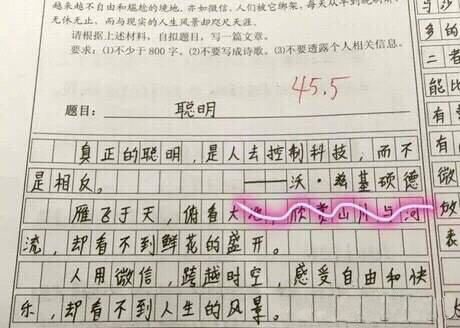 越来越不自由和尴尬的境地。亦如微信,人们被它绑架,每天从早到晚刷屏,
无休无止,而与现实的人生风景却咫尺天涯。
请根据上述材料,自拟题目,写一篇文章。
要求:(1)不少于800字。(2)不要写成诗歌。(3)不要透露个人相关信息。
45.5
题目: 聪明
真正的聪明,是人去控制科技,而不
是相反。 ——沃·兹基硕德
雁飞于天,俯看大地,欣赏山川与河
流,却看不到鲜花的盛开。
人用微信,跨越时空,感受自由和快
乐,却看不到人生的风景。
与
多的
能比
有
有
微
放
表